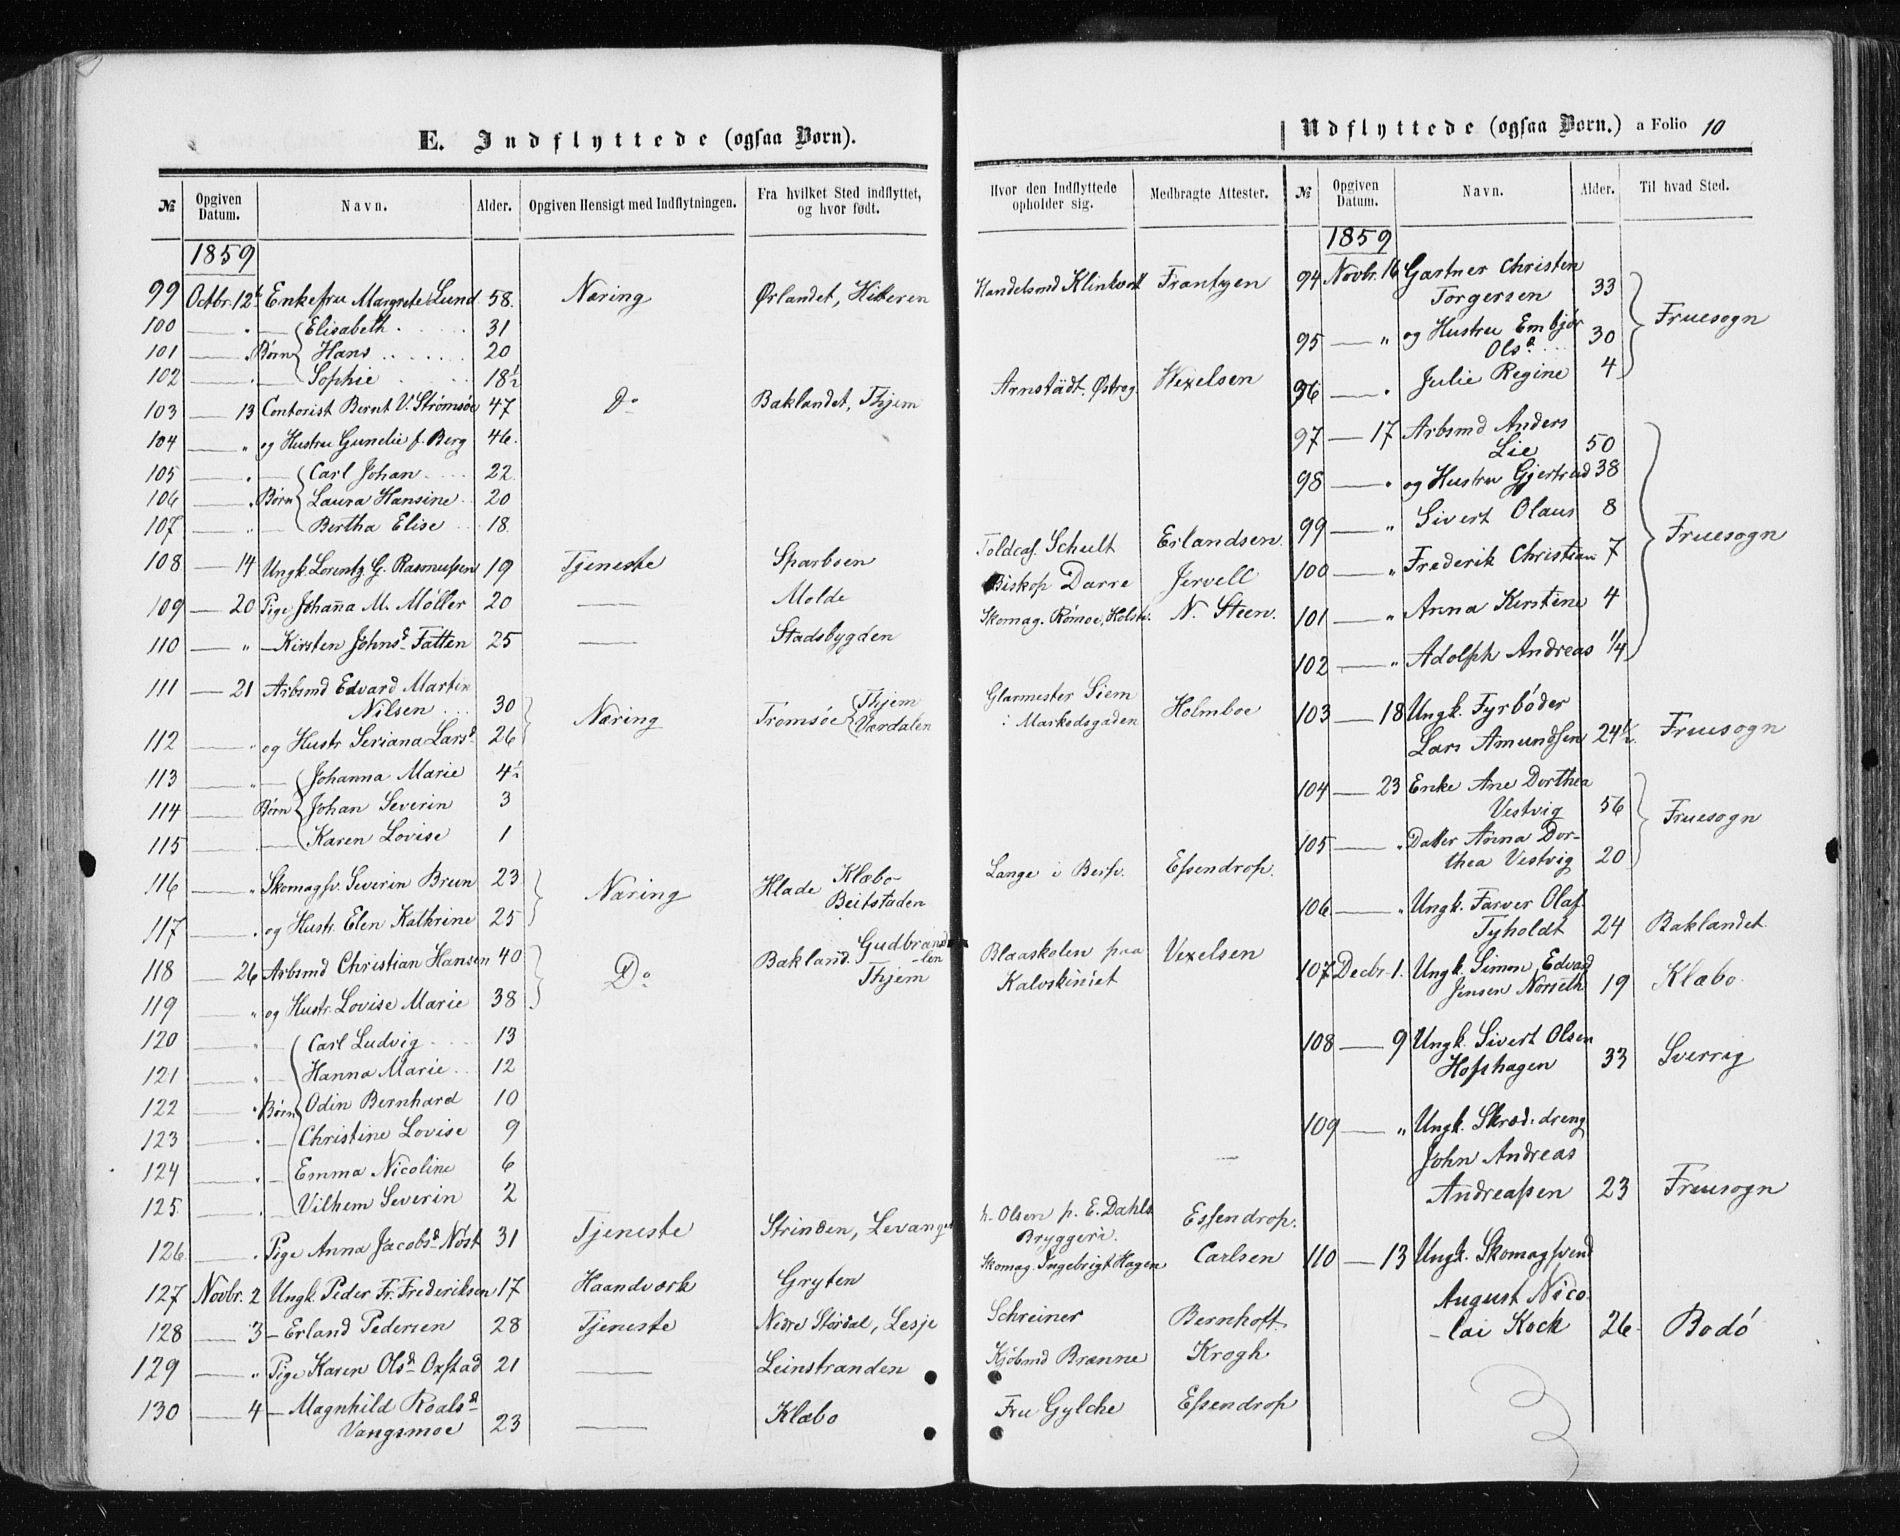 E. Indflyttede (ogsaa Børn).
№ Opgiven Datum. Navn. Alder. Opgiven Hensigt med Indflytningen. Fra hvilket Sted indflyttet, og hvor født. Hvor den Indflyttede opholder sig. Medbragte Attester.
1859
99 Octbr. 12 Enkefru Margrete Lund 58. Næring Ørlandet, Hitteren Handelsmd Frantzen
100 — " — Elisabeth 31
101 — " Børn Hans 20
102 — " — Sophie 18½
103 — 13 Contorist Bernt V. Strømsøe 47 Do Baklandet, Thjem Arnstädt. Wexelsen
104 — " og Hustru Gunelie f. Berg 46.
105 — " — Carl Johan 22
106 — " Børn Laura Hansine 20
107 — " — Bertha Elise 18
108 — 14 Ungk. Lorentz G. Rasmussen 19 Tjeneste Sparboen Toldcas. Schult Erlandsen.
109 — 20 Pige Johanna M. Møller 20 — Molde Biskop Darre Jervell
110 — " — Kirsten Johnsd. Fatten 25 — Stadsbygden Skomag. Rømoe, Holstv. N. Steen.
111 — 21 Arbsmd Edvard Martin
Nilsen 30 Næring Tromsøe Thjem Værdalen Glarmester Siem Holmboe
i Markedsgaden
112 — " og Hustr. Seriana Larsd. 26
113 — " — Johanna Marie 4½
114 — " Børn Johan Severin 3
115 — Karen Lovise 1
116 — " Skomagsv. Severin Brun 23 Næring Hlade Klæbo Beitstaden Lange i Essendrop.
117 — " og Hustr. Elen Kathrine 25
118 — 26 Arbsmd Christian Hansen 40 Do Bakland. Gudbrandsdalen Thjem Blaaskolen paa Vexelsen
Kalvskindet
119 — " og Hustr. Lovise Marie 38
120 — " — Carl Ludvig 13
121 — " — Hanna Marie 12
122 — " Børn Odin Bernhard 10
123 — " — Christine Lovise 9
124 — Emma Nicoline 6
125. — Vilhem Severin 2
126. — " Pige Anna Jacobsd. Nøst 31 Tjeneste Strinden, Levanger Olsen p. E. Dahls Essendrop.
Bryggeri.
127 Novbr. 2 Ungk. Peder Fr. Frederiksen 17 Haandværk Gryten Skomag. Ingebrigt Hagen Carlsen
128 — 3 — Erland Pedersen 28 Tjeneste Nedre Stördal, Lesje Schreiner Bernhoft.
129 — " Pige Karen Olsd. Oxstad 21 — Leinstranden Kjöbmd Brænne Krogh
130 — 4 — Magnhild Roalsd.
Vangsmoe 23 — Klæbo Fru Gylche Essendrop
Udflyttede (ogsaa Børn.) a Folio 10
№ Opgiven Datum. Navn. Alder. Til hvad Sted.
1859
94 Novbr. 16 Gartner Christen
Torgersen 33 Fruesogn
95 — " og Hustru Embjør
Olsd. 30
96 — " Julie Regine 4
97 — 17 Arbsmd Anders
Lie 50 Fruesogn
98 — " og Hustru Gjertrud 38
99 — " Sivert Olaus 8
100 — " Frederik Christian 7
101 — " Anna Kirstine 4
102 — " Adolph Andreas ¼
103 — 18 Ungk. Fyrbøder
Lars Amundsen 24½. Fruesogn
104 — 23 Enke Ane Dorthea
Vestvig 56 Fruesogn
105 — " Datter Anna Dor-
thea Vestvig 20
106 — " Ungk. Farver Olaf
Tyholdt 24 Baklandet
107 Decbr. 1. Ungk. Simon Edvard
Jensen Norseth 19 Klæbo.
108 — 9 Ungk. Sivert Olsen
Hofshagen 33 Sverrig
109 — " Ungk. Skræd: dreng
John Andreas
Andreassen 23 Fruesogn
110 — 13 Ungk. Skomagsvend
August Nico-
lai Kock 26 Bodö